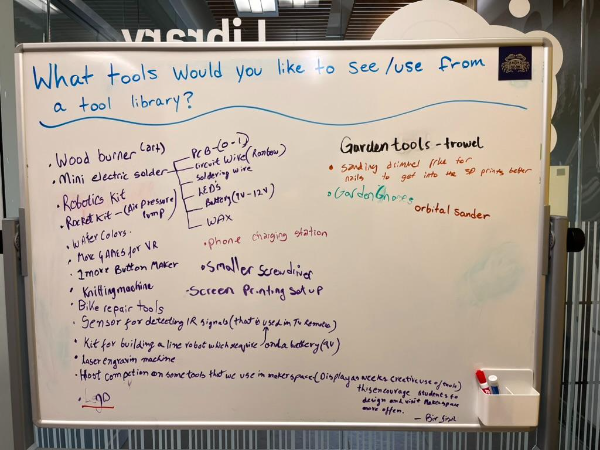 Library
What tools would you like to see/use from
a tool library?
• Wood burner (art)
• Mini electric solder
PCB-(0-1)
Circuit Wire (Rainbow)
soldering wire
LEDS
Battery (9V-12V)
WAX
• Robotics Kit
• Rocket Kit - (Air pressure
Pump)
• Water Colors.
• More GAMES for VR
• 1 more Button Maker
• Knitting machine
• Bike repair tools
• Sensor for detecting IR signals (that is used in TV remotes)
• Kit for building a line robot which require and a battery (9V)
• Laser engravin machine
• Host compition on some tools that we use in makerspace (Display as weeks creative use of tools)
this encourage students to
design and visit Makerspace
more often.
• phone charging station
• Smaller screwdriver
• Screen Printing set up
Garden tools - trowel
• Sanding for
nails to get into the 3D prints better
• Garden Gnomes
orbital sander